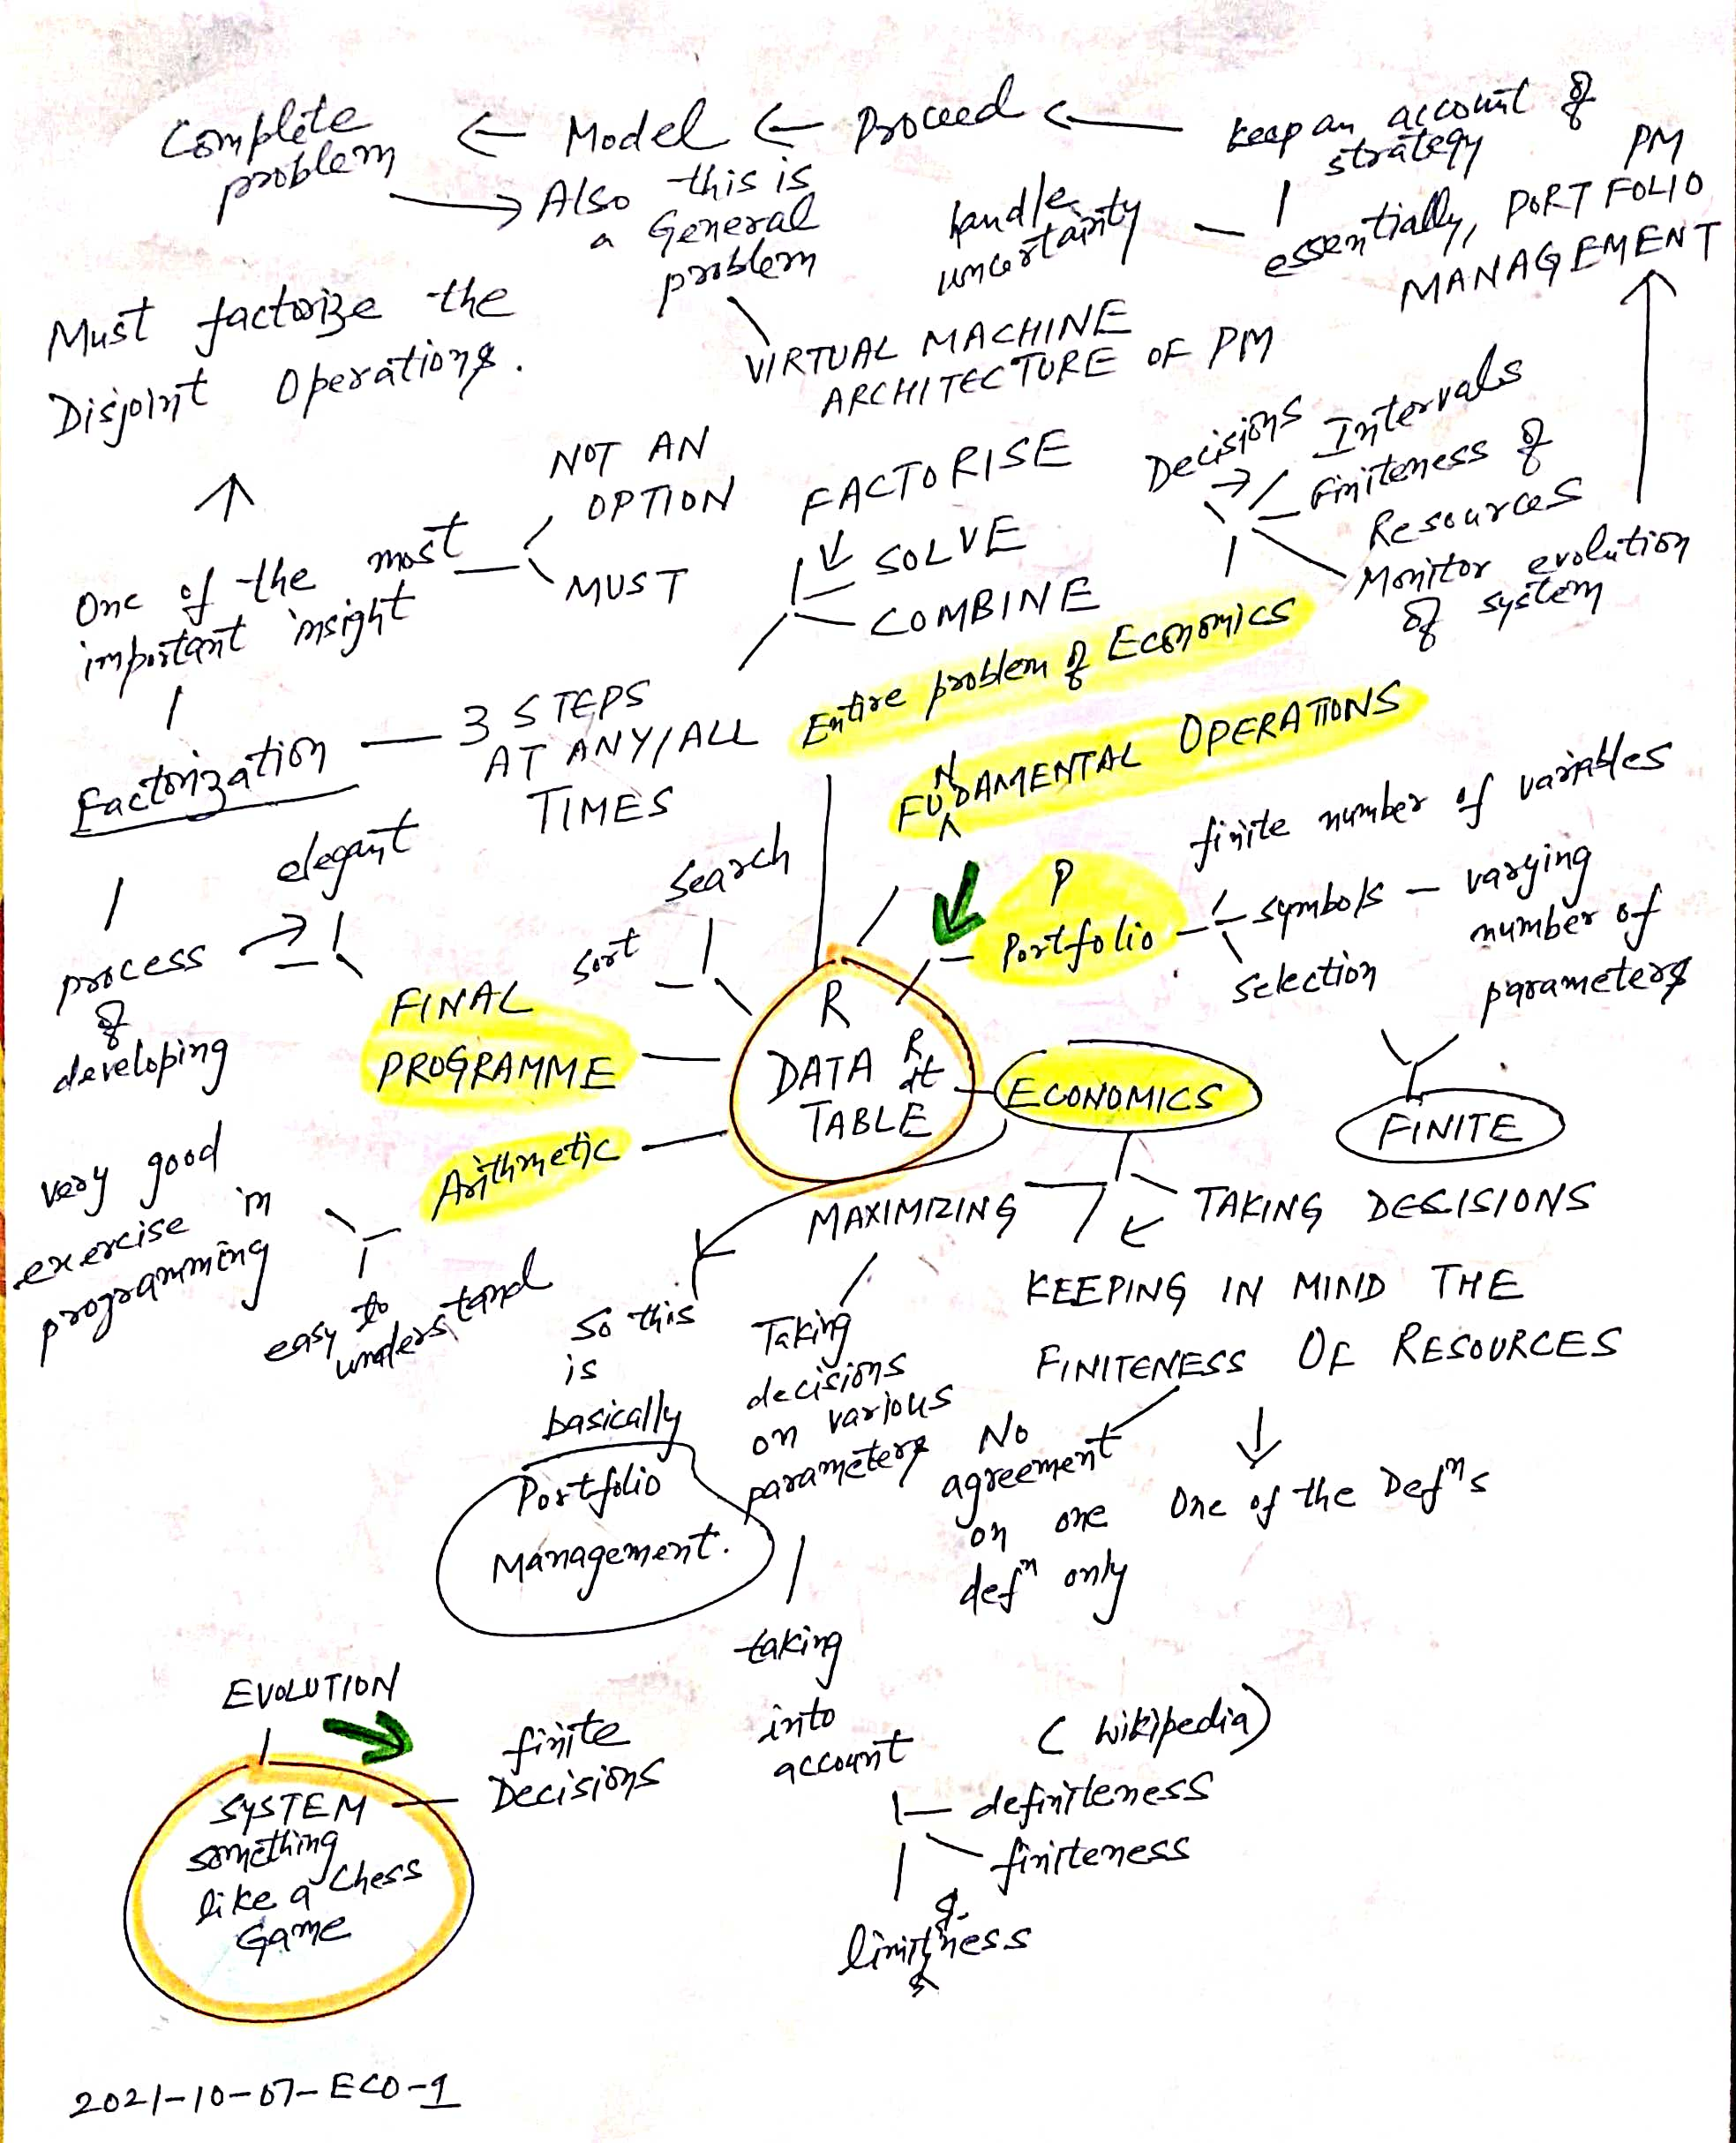 Complete
problem
← Model ← Proceed ←
keep an account of
strategy
PM
→ Also this is
a General
problem
handle
uncertainty
essentially, PORTFOLIO
MANAGEMENT
Must factorize the
Disjoint Operations.
VIRTUAL MACHINE
ARCHITECTURE OF PM
NOT AN
OPTION
MUST
FACTORISE
SOLVE
COMBINE
Decisions
Intervals
Finiteness of
Resources
Monitor evolution
of system
One of the most
important insight
Factorization
3 STEPS
AT ANY/ALL
TIMES
Entire problem of Economics
FUNDAMENTAL OPERATIONS
elegant
process
of
developing
Search
Sort
FINAL
PROGRAMME
P
Portfolio
finite number of variables
symbols – varying
number of
parameters
selection
FINITE
R
DATA R
dt
TABLE
ECONOMICS
Arithmetic
very good
exercise in
programming
easy to
understand
MAXIMIZING
TAKING DECISIONS
KEEPING IN MIND THE
FINITENESS OF RESOURCES
So this
is
basically
Portfolio
Management.
Taking
decisions
on various
parameters
No
agreement
on one
defⁿ only
One of the Defⁿs
taking
into
account
(Wikipedia)
definiteness
finiteness
EVOLUTION
SYSTEM
something
like a Chess
Game
finite
Decisions
2021-10-07-ECO-1